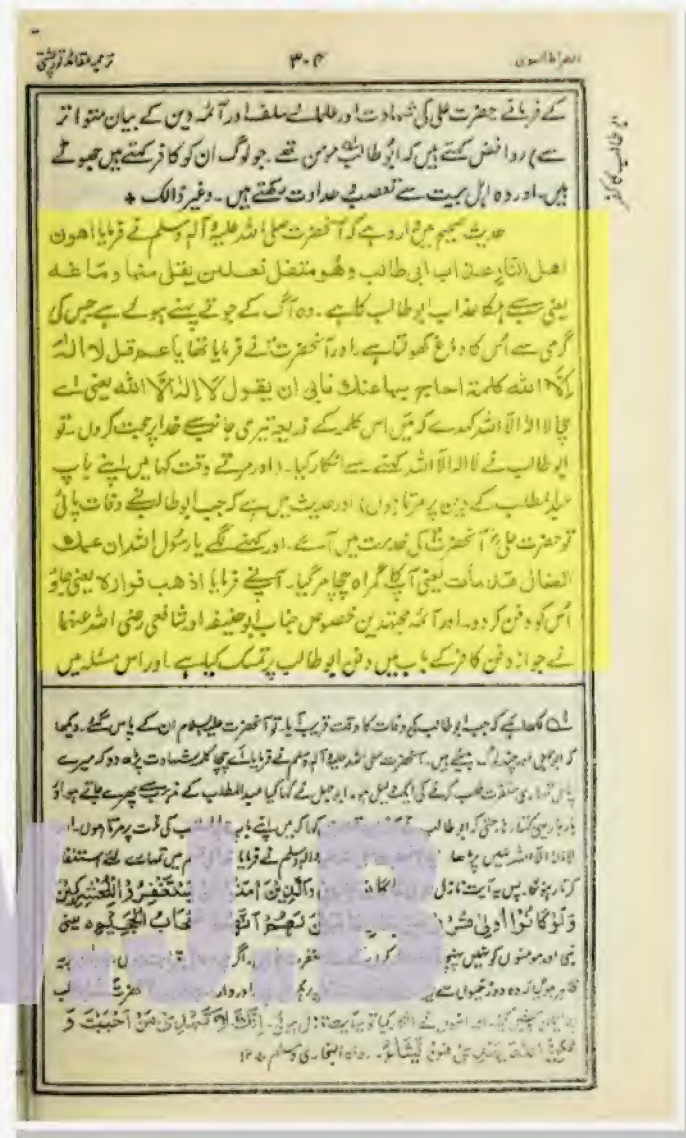 ترجمہ عقائد تورپشتی
۳۰۴
کے فرمانے حضرت علی کی شہادت اور علمائے سلف اور آئمہ دین کے بیان متواتر
سے) روافض کہتے ہیں کہ ابوطالب مومن تھے۔ جو لوگ ان کو کافر کہتے ہیں جھوٹے
ہیں۔ اور وہ اہل بیت سے تعصب و عداوت رکھتے ہیں۔ وغیر ذالک
ابوطالب کا کفر
حدیث صحیح میں وارد ہے کہ آنحضرت صلی اللہ علیہ وآلہ وسلم نے فرمایا اھون
اھل النار عذاب ابی طالب وھو متنعل نعلین یغلی منھا دماغہ
یعنی سب سے ہلکا عذاب ابوطالب کا ہے۔ وہ آگ کے جوتے پہنے ہوئے ہے جس کی
گرمی سے اُس کا دماغ کھولتا ہے۔ اور آنحضرت نے فرمایا تھا یا عم قل لا الہ
الا اللہ کلمۃ احاج بہا عنک فابی ان یقول لا الہ الا اللہ یعنی اے
چچا لا الہ الا اللہ کہدے کہ میں اس کلمہ کے ذریعہ تیری جانب سے خدا پر حجت کروں۔ تو
ابوطالب نے لا الہ الا اللہ کہنے سے انکار کیا۔ (اور مرتے وقت کہا میں اپنے باپ
عبدالمطلب کے دین پر مرتا ہوں) اور حدیث میں ہے کہ جب ابوطالب نے وفات پائی
تو حضرت علی آنحضرت کی خدمت میں آئے۔ اور کہنے لگے یا رسول اللہ ان عمک
الضال قد مات یعنی آپ کا گمراہ چچا مر گیا۔ آپنے فرمایا اذھب فوارہ یعنی جاؤ
اُس کو دفن کر دو۔ اور آئمہ مجتہدین خصوص جناب ابوحنیفہ اور شافعی رضی اللہ عنہما
نے جواز دفن کافر کے باب میں دفن ابوطالب پر تمسک کیا ہے۔ اور اس مسئلہ میں
لکھا ہے کہ جب ابوطالب کی وفات کا وقت قریب آیا۔ تو آنحضرت علیہ السلام ان کے پاس گئے۔ دیکھا
کہ ابوجہل اور چند لوگ بیٹھے ہیں۔ آنحضرت صلی اللہ علیہ وآلہ وسلم نے فرمایا اے چچا کلمہ شہادت پڑھ دو کہ میرے
پاس تمہاری مغفرت طلب کرنے کی ایک دلیل ہو۔ ابوجہل نے کہا کیا عبدالمطلب کے مذہب سے پھرے جاتے ہو اؤ
بار بار یہی کہتا رہا حتیٰ کہ ابوطالب نے کہا کہ میں اپنے باپ کی ملت پر مرتا ہوں۔ اور
لا الہ الا اللہ نہیں پڑھا وآلہ وسلم نے فرمایا میں تمہارے لئے استغفا
کرتا رہونگا۔ پس یہ آیت نازل والذین امنوا یستغفروا للمشرکین
ولو کانوا اولی قربی لھم انھم اصحاب الجحیم یعنی
نبی اور مومنوں کو نہیں اگر
ظاہر ہو گیا کہ وہ دوزخیوں سے اور
انک لا تھدی من احببت و
یشاء۔ رواہ البخاری ومسلم ۱۲